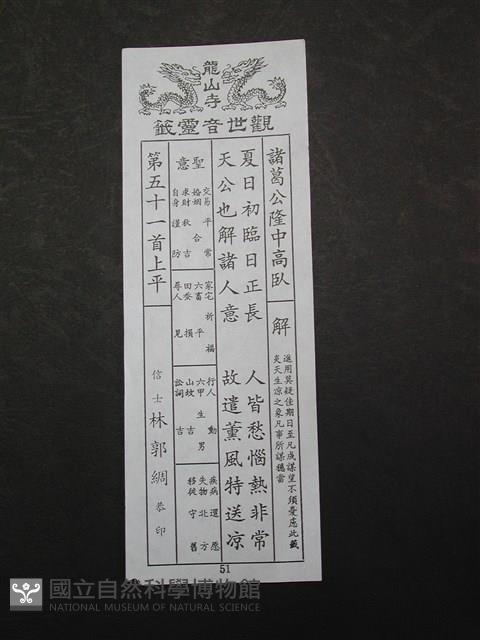 龍山寺
觀世音靈籤
諸葛公隆中高臥
解
進用莫疑佳期日至凡成謀望不須憂慮此籤
炎天生凉之象凡事所謀穩當
夏日初臨日正長 人皆愁惱熱非常
天公也解諸人意 故遣薰風特送凉
聖意
交易 平常
婚姻 合
求財 秋吉
自身 謹防
家宅 祈福
六畜 平
田蚕 損
尋人 見
行人 動
六甲 生男
山坟 吉
訟詞 吉
疾病 還愿
失物 北方
移徙 守舊
第五十一首上平
信士 林郭綢 恭印
51
國立自然科學博物館
NATIONAL MUSEUM OF NATURAL SCIENCE